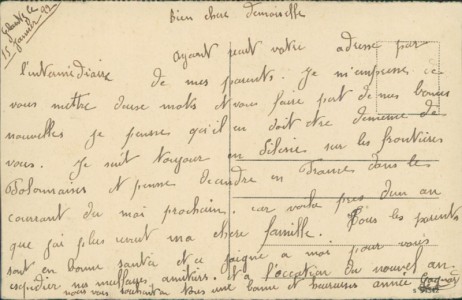 15 Janvier 22
Bien chere demoiselle
Ayant peut votre adresse par
l'intermidiaire de mes parents. Je m'empresse de
vous mettre deuse mots et vous faire part de mes bonnes
nouvelles je penses qu'il en doit etre de meme de
vous. Je suit toujour en Silesie sur les frontieres
Polonnaises et pense decendre en France dans le
courant du moi prochain. car voila pres d'un an
que j'ai plus revut ma chere famille. Tous les parents
sont en bonne santer et ce joigne a moi pour vous
esquedier nos meilleures amitiers. Et a l'occation du nouvel an.
nous vous souhaitons tous une bonne et heureuses année